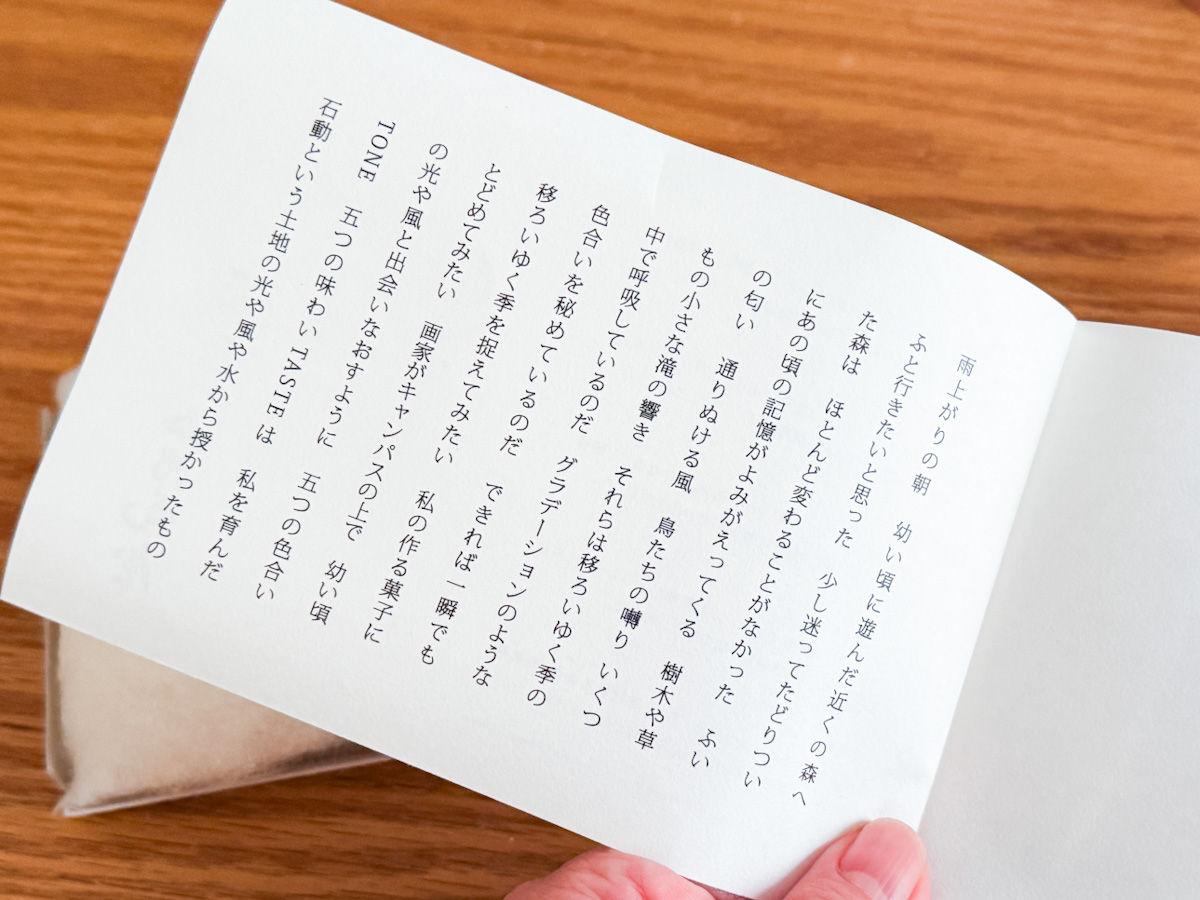 雨上がりの朝　幼い頃に遊んだ近くの森へ
ふと行きたいと思った　少し迷ってたどりつい
た森は　ほとんど変わることがなかった　ふい
にあの頃の記憶がよみがえってくる　樹木や草
の匂い　通りぬける風　鳥たちの囀り いくつ
もの小さな滝の響き　それらは移ろいゆく季の
中で呼吸しているのだ　グラデーションのような
色合いを秘めているのだ　できれば一瞬でも
移ろいゆく季を捉えてみたい　私の作る菓子に
とどめてみたい　画家がキャンパスの上で　幼い頃
の光や風と出会いなおすように　五つの色合い
TONE　五つの味わい TASTE は　私を育んだ
石動という土地の光や風や水から授かったもの